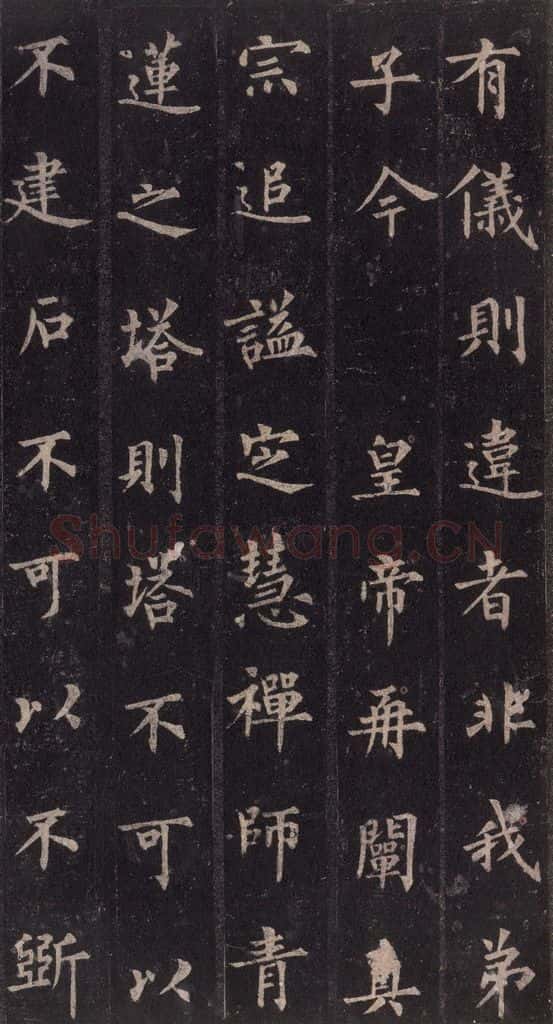 有儀則違者非我弟
子今皇帝再闡真
宗追謚定慧禪師青
蓮之塔則塔不可以
不建石不可以不斲
Shufawang.CN